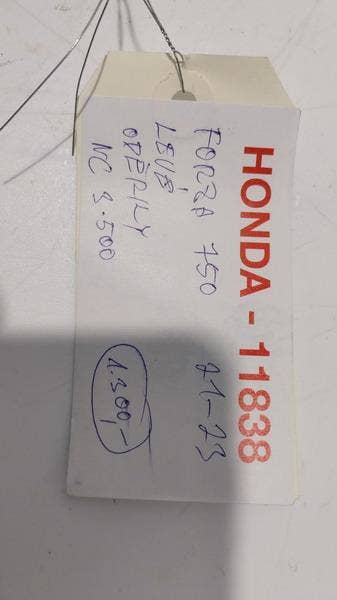 HONDA - 11838
FORZA 750 21-23
LEVÉ
ODĚRKY
NC 3.500
1.300,-